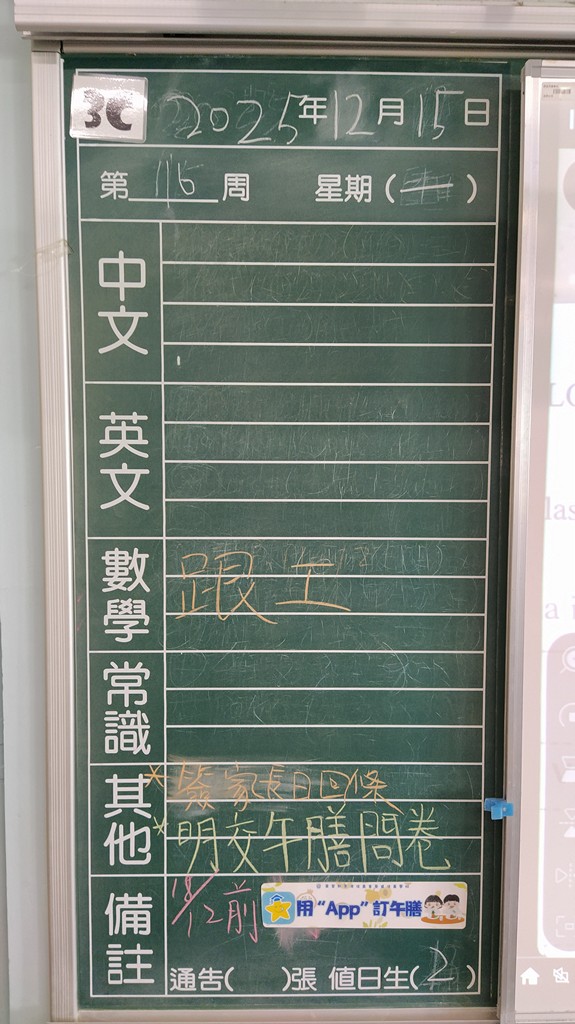 3C 2025年12月15日
第 16 周 星期(一)
中文
英文
數學 跟工
常識
其他 *簽家長日回條
*明交午膳問卷
備註 18/12前 用“App”訂午膳
通告( )張 值日生(2)